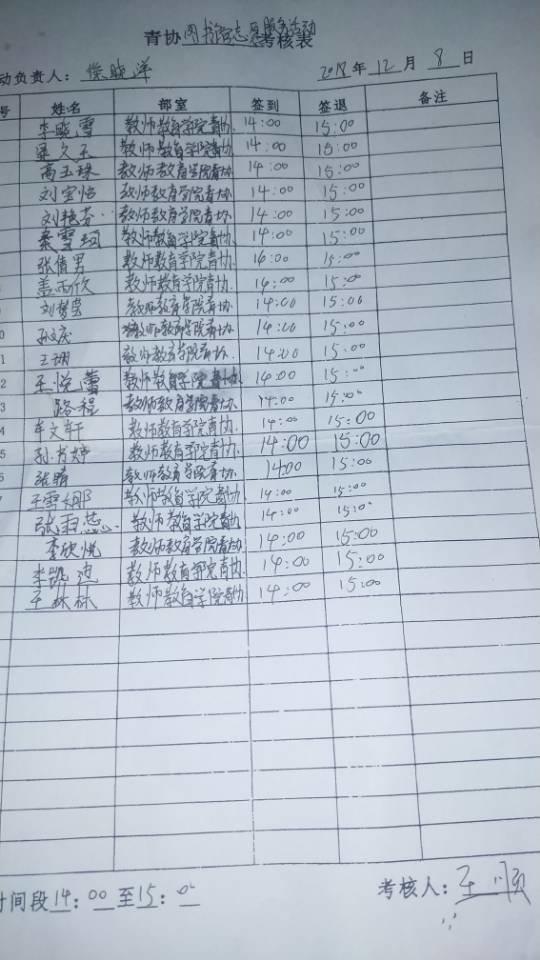 青协图书馆志愿服务活动考核表
动负责人：侯晓洋 2018年12月8日
号 姓名 部室 签到 签退 备注
李晓雪 教师教育学院青协 14:00 15:00
教师教育学院青协 14:00 15:00
高玉珠 教师教育学院青协 14:00 15:00
刘宝怡 教师教育学院青协 14:00 15:00
刘艳芬 教师教育学院青协 14:00 15:00
秦雪珂 教师教育学院青协 14:00 15:00
张倩男 教师教育学院青协 14:00 15:00
盖雨欣 教师教育学院青协 14:00 15:00
刘梦莹 教师教育学院青协 14:00 15:00
0 孙文庆 教师教育学院青协 14:00 15:00
1 王珊 教师教育学院青协 14:00 15:00
2 王悦蕾 教师教育学院青协 14:00 15:00
3 路程 教师教育学院青协 14:00 15:00
4 牟文轩 教师教育学院青协 14:00 15:00
5 孙书婷 教师教育学院青协 14:00 15:00
6 张晴 教师教育学院青协 14:00 15:00
7 王雪娜 教师教育学院青协 14:00 15:00
张雨蕊 教师教育学院青协 14:00 15:00
李欣悦 教师教育学院青协 14:00 15:00
李凯迪 教师教育学院青协 14:00 15:00
王林林 教师教育学院青协 14:00 15:00
时间段14:00至15:00 考核人：王顺